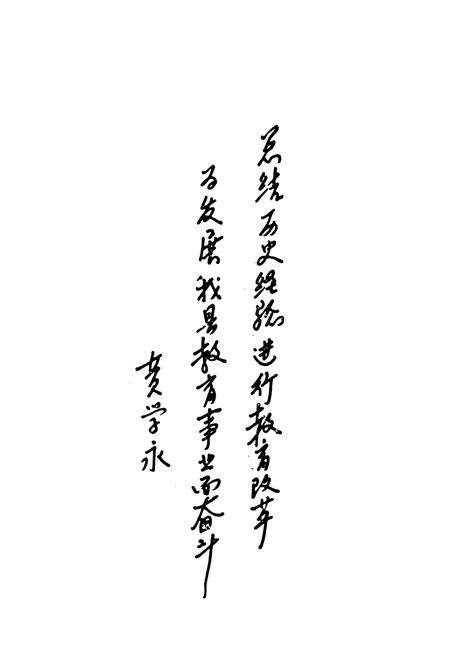 总结历史经验进行教育改革
为发展我县教育事业而奋斗
黄学永